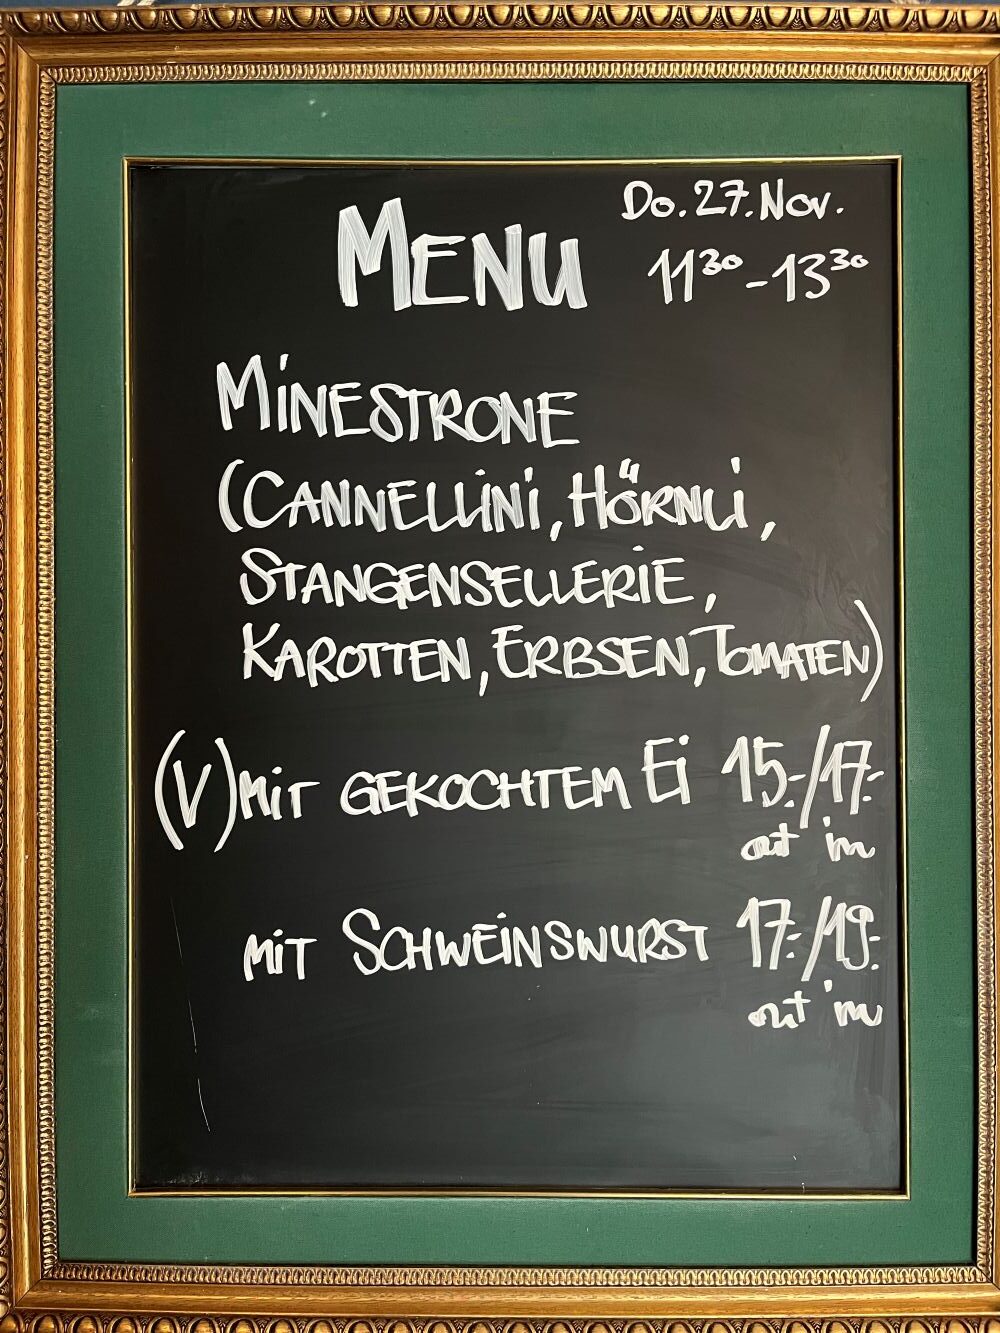 MENU
Do. 27. Nov.
11³⁰ - 13³⁰
MINESTRONE
(CANNELLINI, HÖRNLI,
STANGENSELLERIE,
KAROTTEN, ERBSEN, TOMATEN)
(V) MIT GEKOCHTEM EI 15.-/17.-
out in
MIT SCHWEINSWURST 17.-/19.-
out in